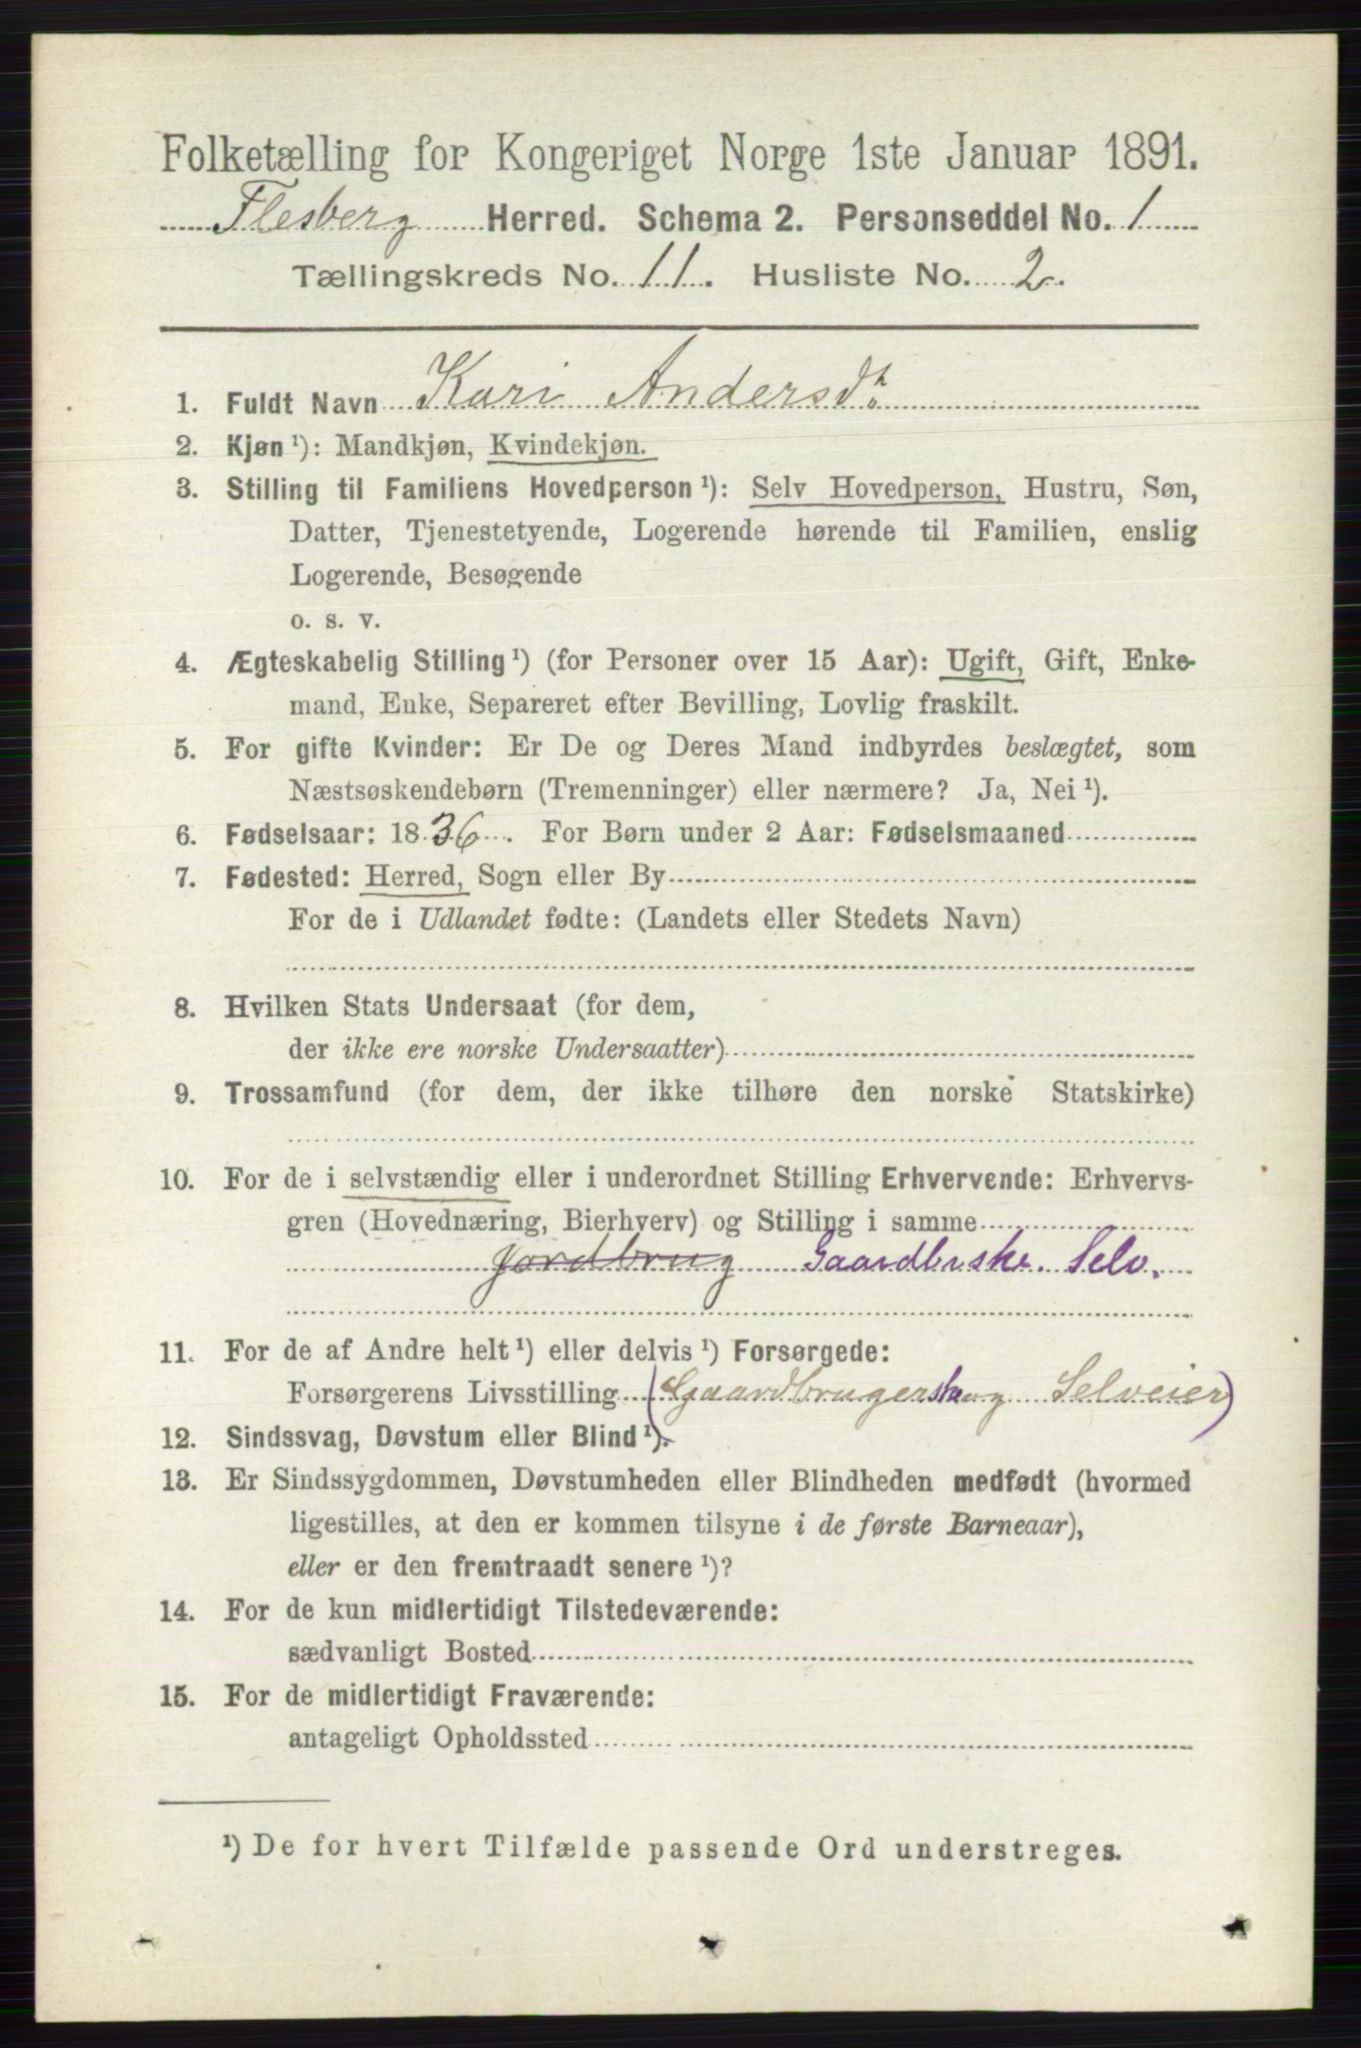 Folketælling for Kongeriget Norge 1ste Januar 1891.
Flesberg Herred. Schema 2. Personseddel No. 1
Tællingskreds No. 11. Husliste No. 2.
1. Fuldt Navn Kari Andersdr.
2. Kjøn ¹): Mandkjøn, Kvindekjøn.
3. Stilling til Familiens Hovedperson ¹): Selv Hovedperson, Hustru, Søn,
Datter, Tjenestetyende, Logerende hørende til Familien, enslig
Logerende, Besøgende
o. s. v.
4. Ægteskabelig Stilling ¹) (for Personer over 15 Aar): Ugift, Gift, Enke-
mand, Enke, Separeret efter Bevilling, Lovlig fraskilt.
5. For gifte Kvinder: Er De og Deres Mand indbyrdes beslægtet, som
Næstsøskendebørn (Tremenninger) eller nærmere? Ja, Nei ¹).
6. Fødselsaar: 1836. For Børn under 2 Aar: Fødselsmaaned
7. Fødested: Herred, Sogn eller By
For de i Udlandet fødte: (Landets eller Stedets Navn)
8. Hvilken Stats Undersaat (for dem,
der ikke ere norske Undersaatter)
9. Trossamfund (for dem, der ikke tilhøre den norske Statskirke)
10. For de i selvstændig eller i underordnet Stilling Erhvervende: Erhvervs-
gren (Hovednæring, Bierhverv) og Stilling i samme
Jordbrug Gaardbrske. Selv.
11. For de af Andre helt ¹) eller delvis ¹) Forsørgede:
Forsørgerens Livsstilling (Gaardbrugerske og Selveier)
12. Sindssvag, Døvstum eller Blind ¹).
13. Er Sindssygdommen, Døvstumheden eller Blindheden medfødt (hvormed
ligestilles, at den er kommen tilsyne i de første Barneaar),
eller er den fremtraadt senere ¹)?
14. For de kun midlertidigt Tilstedeværende:
sædvanligt Bosted
15. For de midlertidigt Fraværende:
antageligt Opholdssted
¹) De for hvert Tilfælde passende Ord understreges.